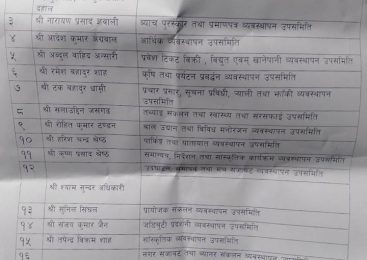 दाहाल
३ श्री नारायण प्रसाद ज्ञवाली व्याच पुरस्कार तथा प्रमाणपत्र व्यवस्थापन उपसमिति
४ श्री आदेश कुमार अग्रवाल आर्थिक व्यवस्थापन उपसमिति
५ श्री अब्दुल वाहिद अन्सारी प्रवेश टिकट बिक्री , विद्युत एवम् खानेपानी व्यवस्थापन उपसमिति
६ श्री रमेश बहादुर शाह कृषि तथा पर्यटन प्रबर्द्धन व्यवस्थापन उपसमिति
७ श्री टेक बहादुर थामी प्रचार प्रसार, सूचना प्रविधी, र्‍याली तथा झाँकी व्यवस्थापन
उपसमिति
८ श्री सलाउद्दिन जसगढ तथ्याङ्क संकलन तथा स्वास्थ्य तथा सरसफाई उपसमिति
९ श्री रोहित कुमार टण्डन बाल उद्यान तथा विविध मनोरंजन व्यवस्थापन उपसमिति
१० श्री हरिश चन्द्र श्रेष्ठ पार्किङ तथा यातायात व्यवस्थापन उपसमिति
११ श्री कृष्ण प्रसाद श्रेष्ठ समन्वय, निर्देशन तथा सांस्कृतिक कार्यक्रम व्यवस्थापन उपसमिति
१२ उद्घाटन, समापन तथा मंच व्यवस्थापन उपसमिति
श्री श्याम सुन्दर अधिकारी
१३ श्री सुनिल सिंघल प्रायोजक संकलन व्यवस्थापन उपसमिति
१४ श्री सजय कुमार जैन जडिबुटी प्रदर्शनी व्यवस्थापन उपसमिति
१५ श्री तपेन्द्र विक्रम शाह सांस्कृतिक व्यवस्थापन उपसमिति
१६ नगर सजावट तथा ब्यानर संकलन व्यवस्थापन